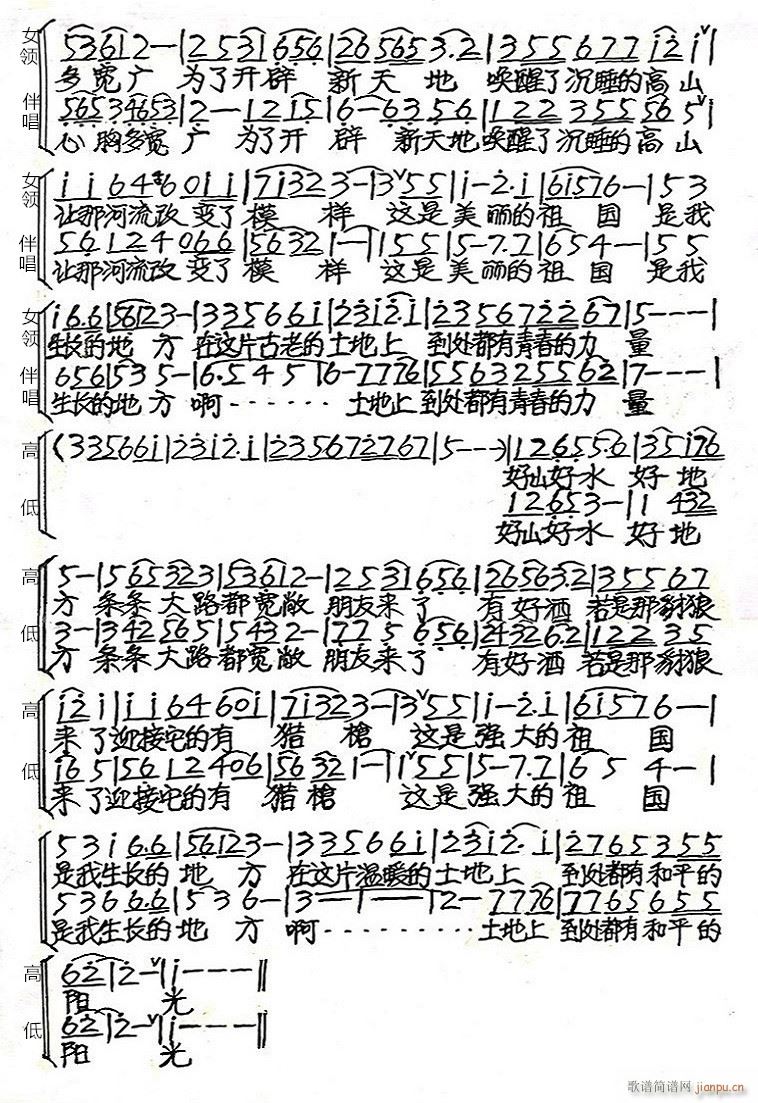 女领 5 3 6 1 2 – | 2 5 3 1 6 5 6 | 2 6 5 6 5 3 . 2 | 3 5 5 6 7 7 i 2 i |
多宽广 为了开辟 新天地 唤醒了沉睡的高山
伴唱 5 6 5 3 4 6 5 3 | 2 – – 1 2 1 5 | 6 – 6 3 5 6 | 1 2 2 3 5 5 5 6 5 |
心胸多宽广 为了开辟 新天地唤醒了沉睡的高山
女领 i i 6 4 6 0 i i | 7 i 3 2 3 – | 3 5 5 | i – 2 . i | 6 i 5 7 6 – | 5 3
让那河流改变了模样 这是美丽的祖国 是我
伴唱 5 6 1 2 4 0 6 6 | 5 6 3 2 1 – | 1 5 5 | 5 – 7 . 7 | 6 5 4 – – | 5 5
让那河流改变了模样 这是美丽的祖国 是我
女领 i 6 . 6 | 5 6 1 2 3 – | 3 3 5 6 6 i | 2 3 i 2 . i | 2 3 5 6 7 2 2 6 7 | 5 – – – |
生长的地方 在这片古老的土地上 到处都有青春的力量
伴唱 6 5 6 | 5 3 5 – | 6 . 5 4 5 | 6 – 7 7 7 6 | 5 5 6 3 2 5 5 6 2 | 7 – – – |
生长的地方 啊 · · · · · · 土地上 到处都有青春的力量
高 ( 3 3 5 6 6 i | 2 3 i 2 . i | 2 3 5 6 7 2 7 6 7 | 5 – – – ) | 1 2 6 5 5 . 6 | 3 5 i 7 6
好山好水 好地
低 1 2 6 5 3 – | 1 4 3 2
好山好水 好地
高 5 – | 5 6 5 3 2 3 | 5 3 6 1 2 – | 2 5 3 1 6 5 6 | 2 6 5 6 3 . 2 | 3 5 5 6 7
方 条条大路都宽敞 朋友来了 有好酒 若是那豺狼
低 3 – | 3 4 2 5 6 5 | 5 4 3 2 – | 7 7 5 6 5 6 | 2 4 3 2 6 2 | 1 2 2 3 5
方 条条大路都宽敞 朋友来了 有好酒 若是那豺狼
高 i 2 i | i i 6 4 6 0 i | 7 i 3 2 3 – | 3 5 5 | i – 2 . i | 6 i 5 7 6 – |
来了迎接它的有 猎枪 这是强大的祖国
低 i 6 5 | 5 6 1 2 4 0 6 | 5 6 3 2 1 – | 1 5 5 | 5 – 7 . 7 | 6 5 4 – |
来了迎接它的有 猎槍 这是强大的祖国
5 3 i 6 . 6 | 5 6 1 2 3 – | 3 3 5 6 6 i | 2 3 i 2 . i | 2 7 6 5 3 5 5
是我生长的地方 在这片温暖的土地上 到处都有和平的
5 3 6 6 . 6 | 5 3 6 – | 3 – – | – – – | 2 – 7 7 7 6 | 7 7 6 5 6 5 5
是我生长的地方 啊 · · · · · · · · · 土地上 到处都有和平的
高 6 2 | 2 – | i – – – ‖
阳光
低 6 2 | 2 – | i – – – ‖
阳光
歌谱简谱网 jianpu.cn